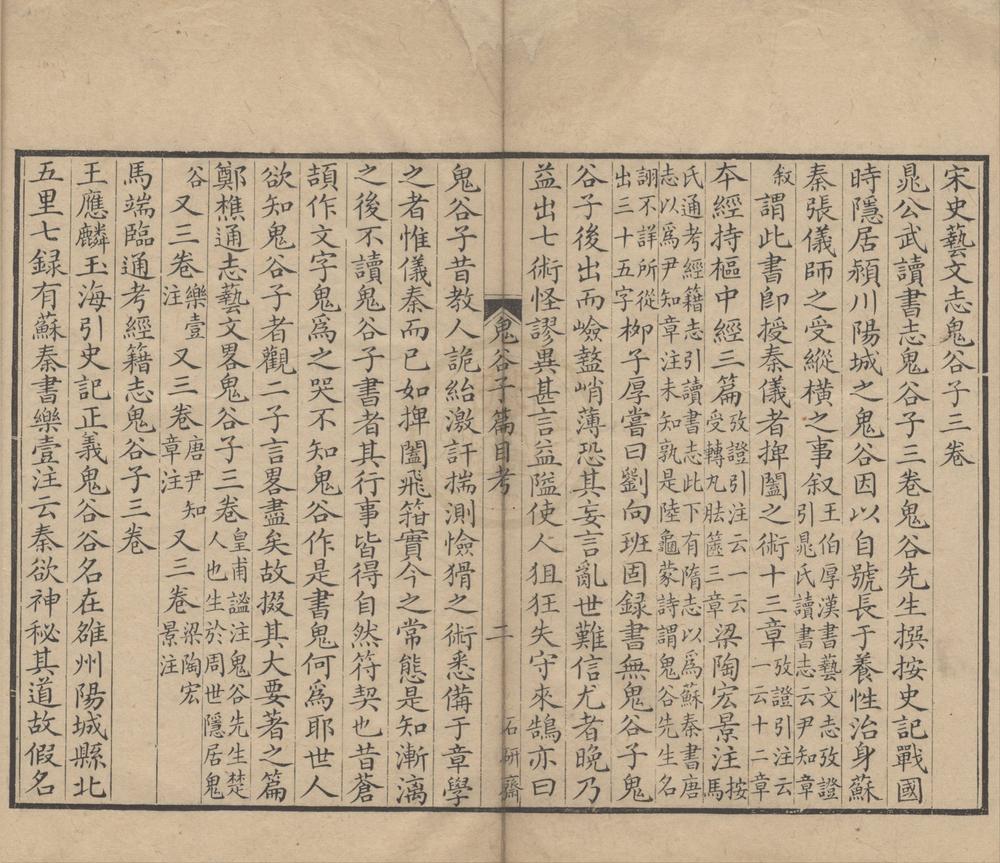 宋史藝文志鬼谷子三卷
晁公武讀書志鬼谷子三卷鬼谷先生撰按史記戰國
時隱居潁川陽城之鬼谷因以自號長于養性治身蘇
秦張儀師之受縱橫之事叙
王伯厚漢書藝文志攷證
引晁氏讀書志云尹知章
叙
謂此書卽授秦儀者捭闔之術十三章
攷證引注云
一云十二章
本經持樞中經三篇
攷證引注云一云
受轉丸胠篋三章
梁陶宏景注
按
馬
氏通考經籍志引讀書志此下有隋志以爲蘇秦書唐
志以爲尹知章注未知孰是陸龜蒙詩謂鬼谷先生名
詡不詳所從
出三十五字
柳子厚嘗曰劉向班固録書無鬼谷子鬼
谷子後出而嶮盭峭薄恐其妄言亂世難信尤者晚乃
益出七術怪謬異甚言益隘使人狙狂失守來鵠亦曰
鬼谷子篇目考
二
石研齋
鬼谷子昔教人詭紿激訐揣測憸猾之術悉備于章學
之者惟儀秦而已如捭闔飛箝實今之常態是知漸漓
之後不讀鬼谷子書者其行事皆得自然符契也昔蒼
頡作文字鬼爲之哭不知鬼谷作是書鬼何爲耶世人
欲知鬼谷子者觀二子言畧盡矣故掇其大要著之篇
鄭樵通志藝文畧鬼谷子三卷
皇甫謐注鬼谷先生楚
人也生於周世隱居鬼
谷
又三卷
樂壹
注
又三卷
唐尹知
章注
又三卷
梁陶宏
景注
馬端臨通考經籍志鬼谷子三卷
王應麟玉海引史記正義鬼谷谷名在雒州陽城縣北
五里七録有蘇秦書樂壹注云秦欲神秘其道故假名